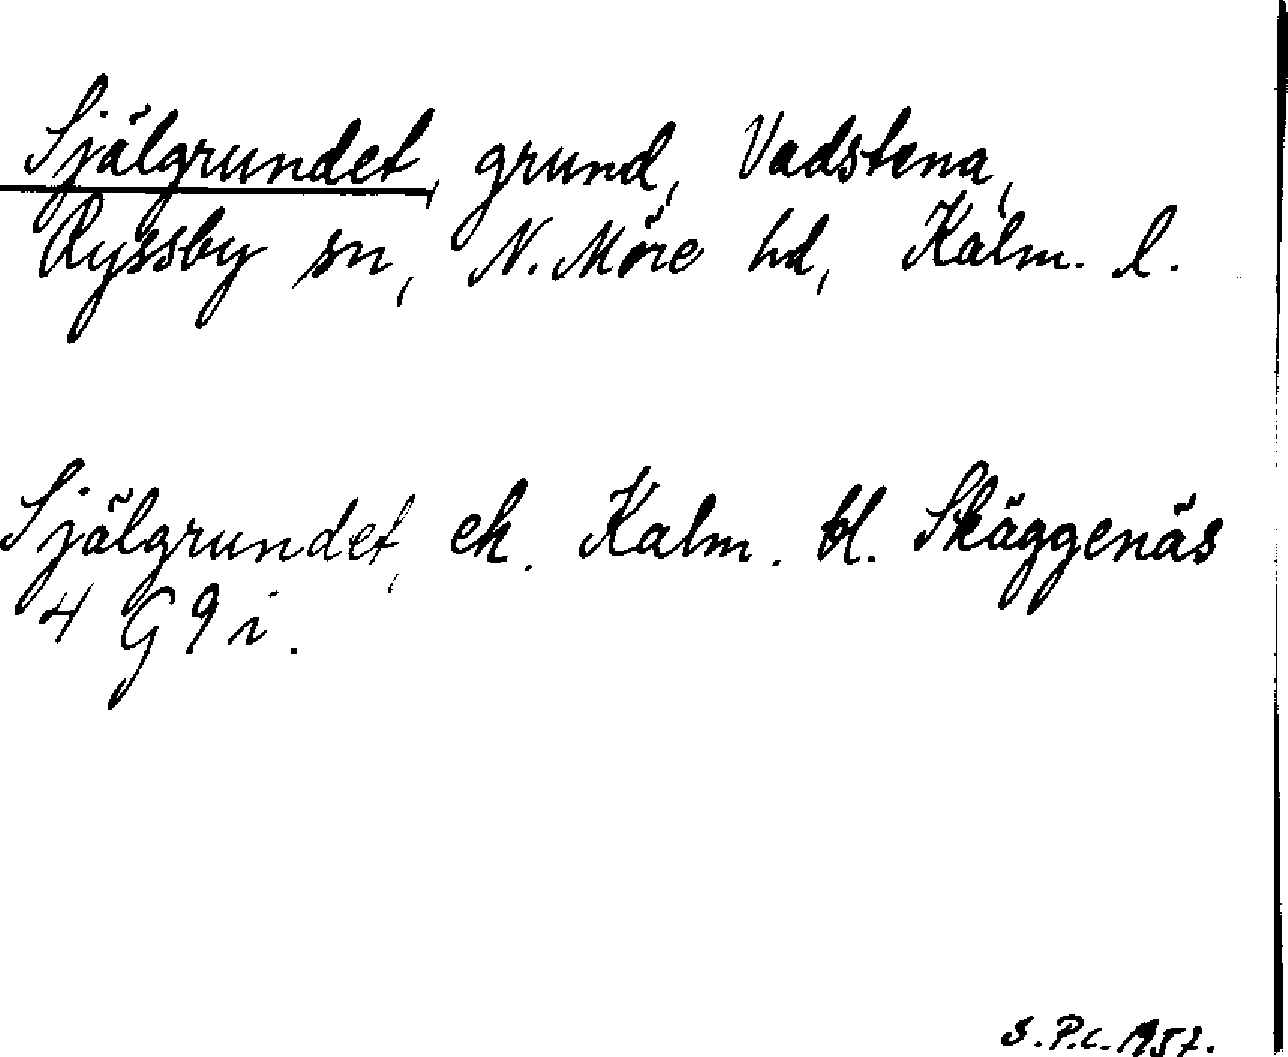 Själgrundet, grund, Vadstena,
Ryssby sn, N. Möre hd, Kalm. l.
Själgrundet, ek. Kalm. bl. Skäggenäs
4 G 9 i.
S.P.C. 1957.